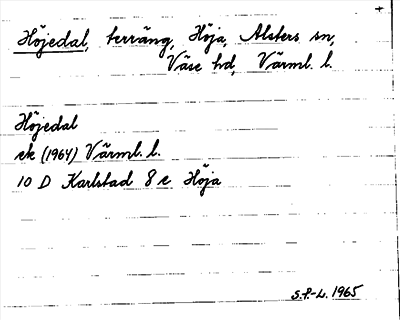 +
Höjedal, terräng, Höja, Alsters sn,
Väse hd, Värml. l.
Höjedal
ek (1964) Värml. l.
10 D Karlstad 8 e Höja
S.F.-L. 1965